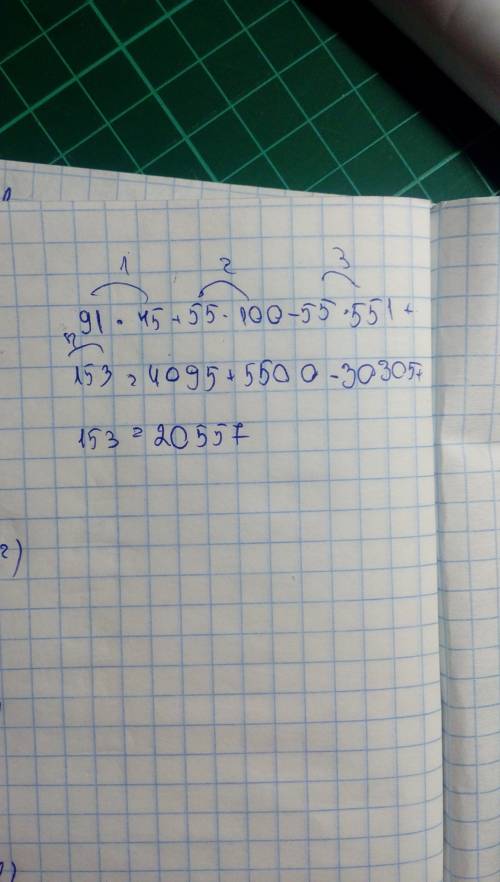 1 2 3
91 · 45 + 55 · 100 - 55 · 551 +
153 = 4095 + 5500 - 30305 +
153 = 20557
2)